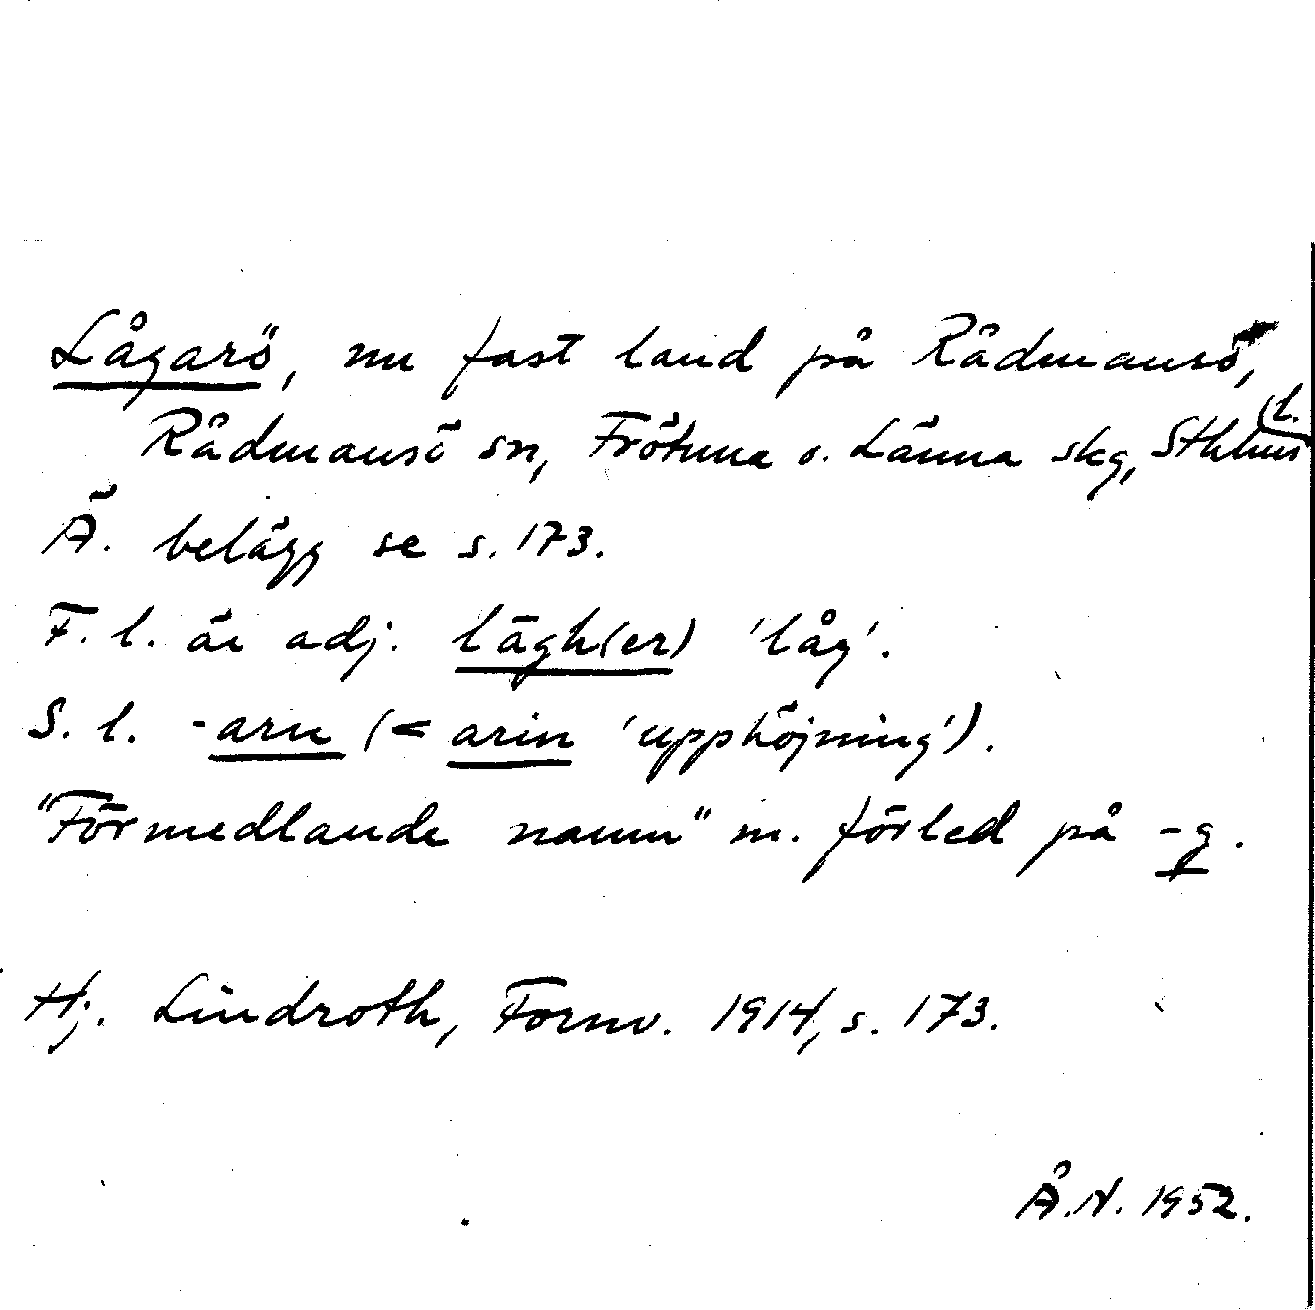 Lågarö, nu fast land på Rådmansö,
Rådmansö sn, Frötuna o. Länna skg, Sthlms l.
Ä. belägg se s. 173.
F. l. är adj. lāgh(er) 'låg'.
S. l. -arn (< arin 'upphöjning').
"Förmedlande namn" m. förled på -g.
Hj. Lindroth, Fornv. 1914, s. 173.
Å.N. 1952.